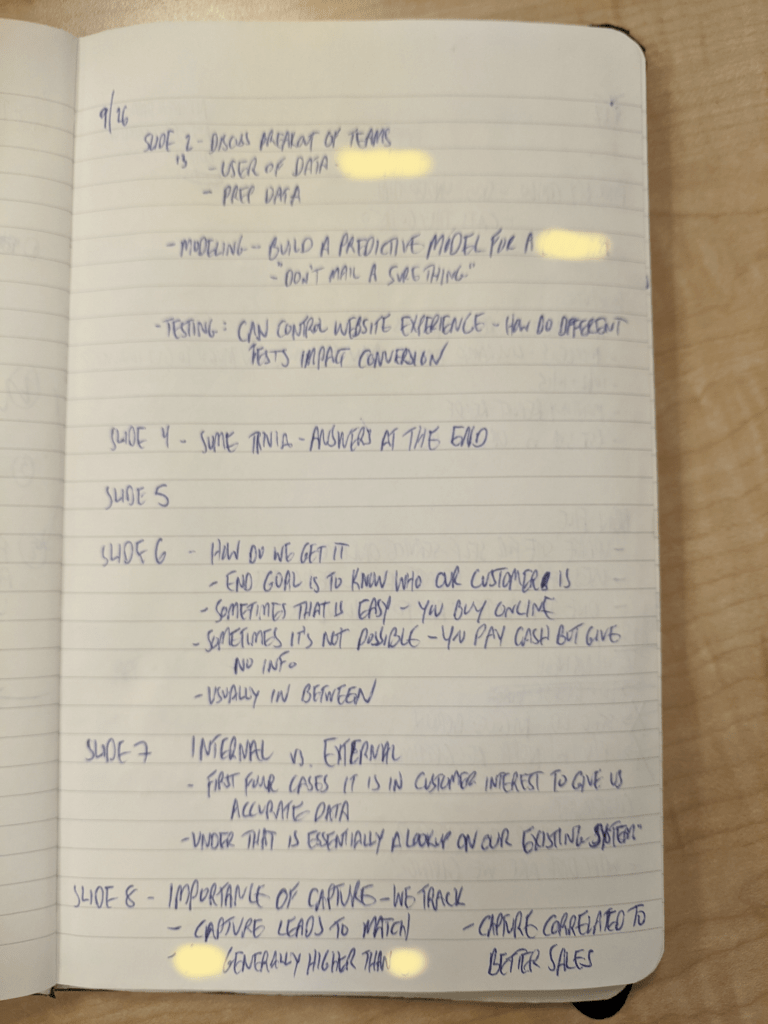 9/26
SLIDE 2 - DISCUSS BREAKOUT OF TEAMS
- USER OF DATA
- PREP DATA
- MODELING - BUILD A PREDICTIVE MODEL FOR A
- "DON'T MAIL A SURE THING"
- TESTING: CAN CONTROL WEBSITE EXPERIENCE - HOW DO DIFFERENT
TESTS IMPACT CONVERSION
SLIDE 4 - SOME TRIVIA - ANSWERS AT THE END
SLIDE 5
SLIDE 6 - HOW DO WE GET IT
- END GOAL IS TO KNOW WHO OUR CUSTOMER IS
- SOMETIMES THAT IS EASY - YOU BUY ONLINE
- SOMETIMES IT'S NOT POSSIBLE - YOU PAY CASH BUT GIVE
NO INFO
- USUALLY IN BETWEEN
SLIDE 7 INTERNAL VS. EXTERNAL
- FIRST FOUR CASES IT IS IN CUSTOMER INTEREST TO GIVE US
ACCURATE DATA
- UNDER THAT IS ESSENTIALLY A LOOKUP ON OUR EXISTING SYSTEM"
SLIDE 8 - IMPORTANCE OF CAPTURE - WE TRACK
- CAPTURE LEADS TO MATCH - CAPTURE CORRELATED TO
- GENERALLY HIGHER THAN BETTER SALES